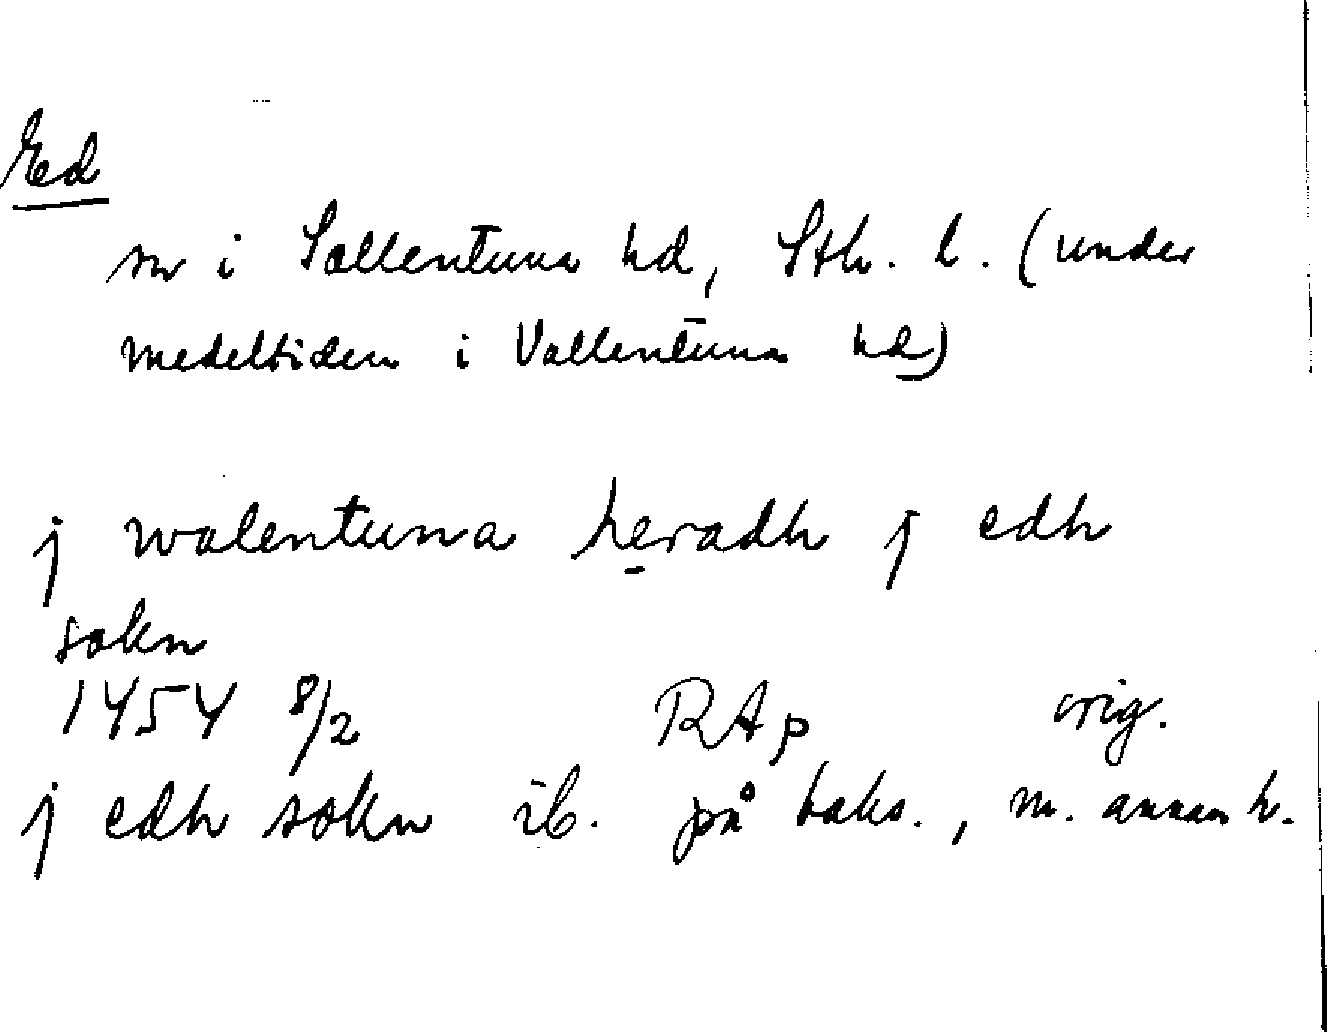 Ed
sn i Sollentuna hd, Sth. l. (under
medeltiden i Vallentuna hd)
j walentuna heradh j edh
sokn
1454 8/2 RAp orig.
j edh sokn ib. på baks., m. annan h.